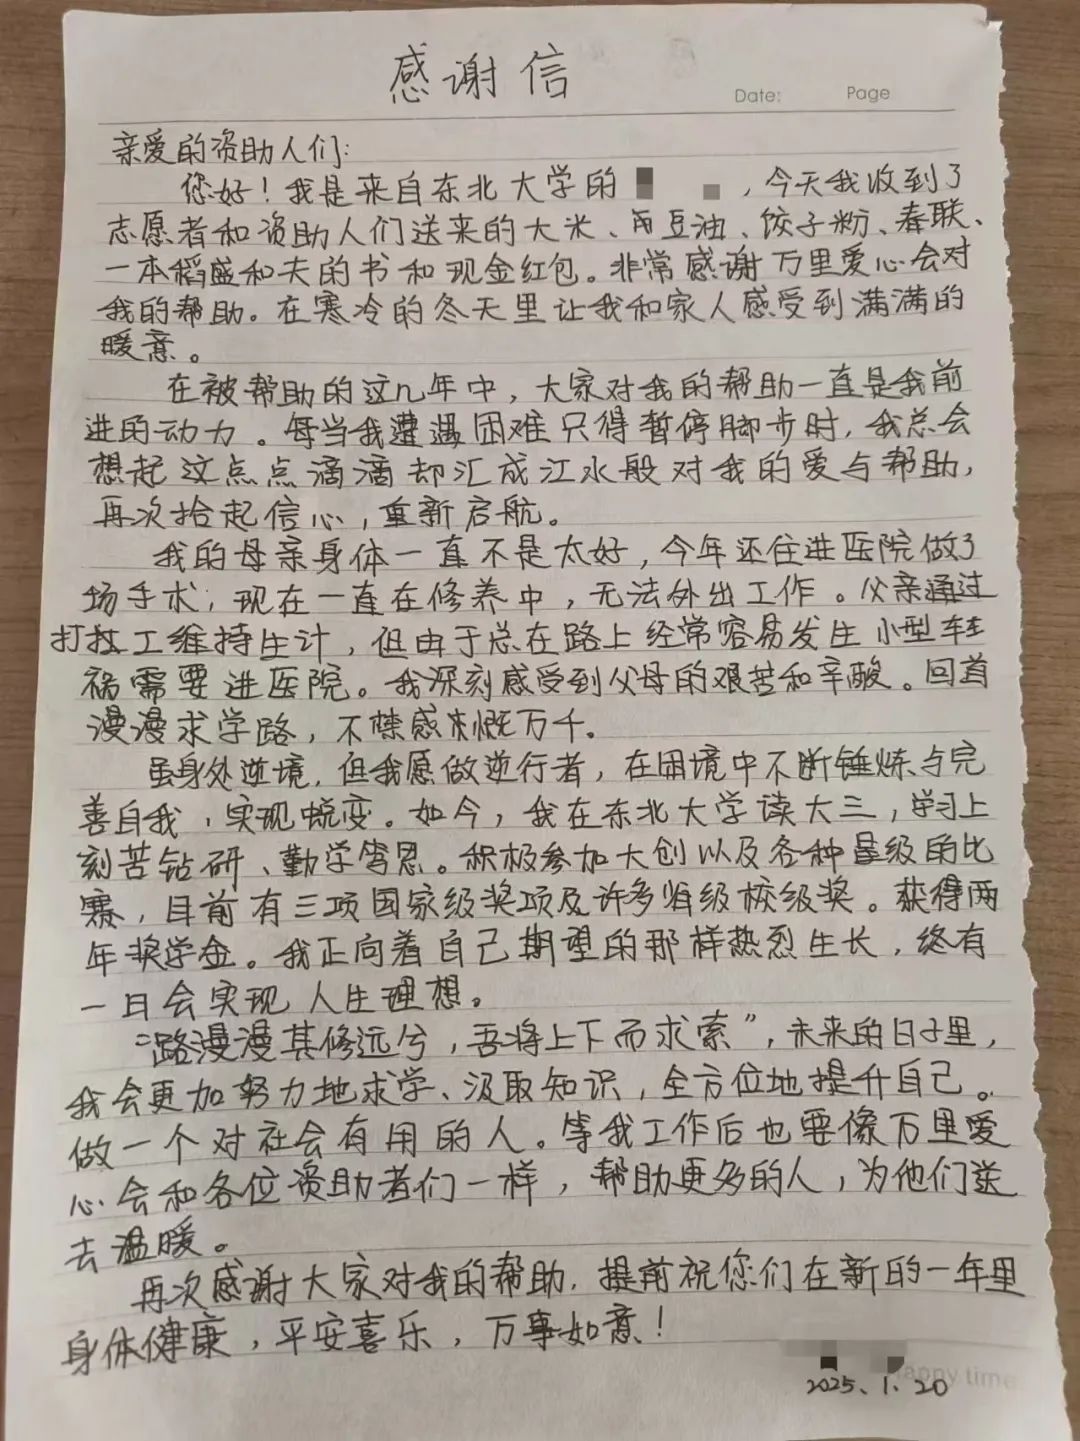 感谢信
Date: Page
亲爱的资助人们:
您好！我是来自东北大学的 ，今天我收到了
志愿者和资助人们送来的大米、豆油、饺子粉、春联、
一本稻盛和夫的书和现金红包。非常感谢万里爱心会对
我的帮助。在寒冷的冬天里让我和家人感受到满满的
暖意。
在被帮助的这几年中，大家对我的帮助一直是我前
进的动力。每当我遭遇困难只得暂停脚步时，我总会
想起这点点滴滴却汇成江水般对我的爱与帮助，
再次拾起信心，重新启航。
我的母亲身体一直不是太好，今年还住进医院做了
场手术，现在一直在修养中，无法外出工作。父亲通过
打工维持生计，但由于总在路上经常容易发生小型车
祸需要进医院。我深刻感受到父母的艰苦和辛酸。回首
漫漫求学路，不禁感慨万千。
虽身处逆境，但我愿做逆行者，在困境中不断锤炼与完
善自我，实现蜕变。如今，我在东北大学读大三，学习上
刻苦钻研、勤学笃思。积极参加大创以及各种量级的比
赛，目前有三项国家级奖项及许多省级校级奖。获得两
年奖学金。我正向着自己期望的那样热烈生长，终有
一日会实现人生理想。
“路漫漫其修远兮，吾将上下而求索”，未来的日子里，
我会更加努力地求学、汲取知识，全方位地提升自己。
做一个对社会有用的人。等我工作后也要像万里爱
心会和各位资助者们一样，帮助更多的人，为他们送
去温暖。
再次感谢大家对我的帮助，提前祝您们在新的一年里
身体健康，平安喜乐，万事如意！
happy time
2025.1.20